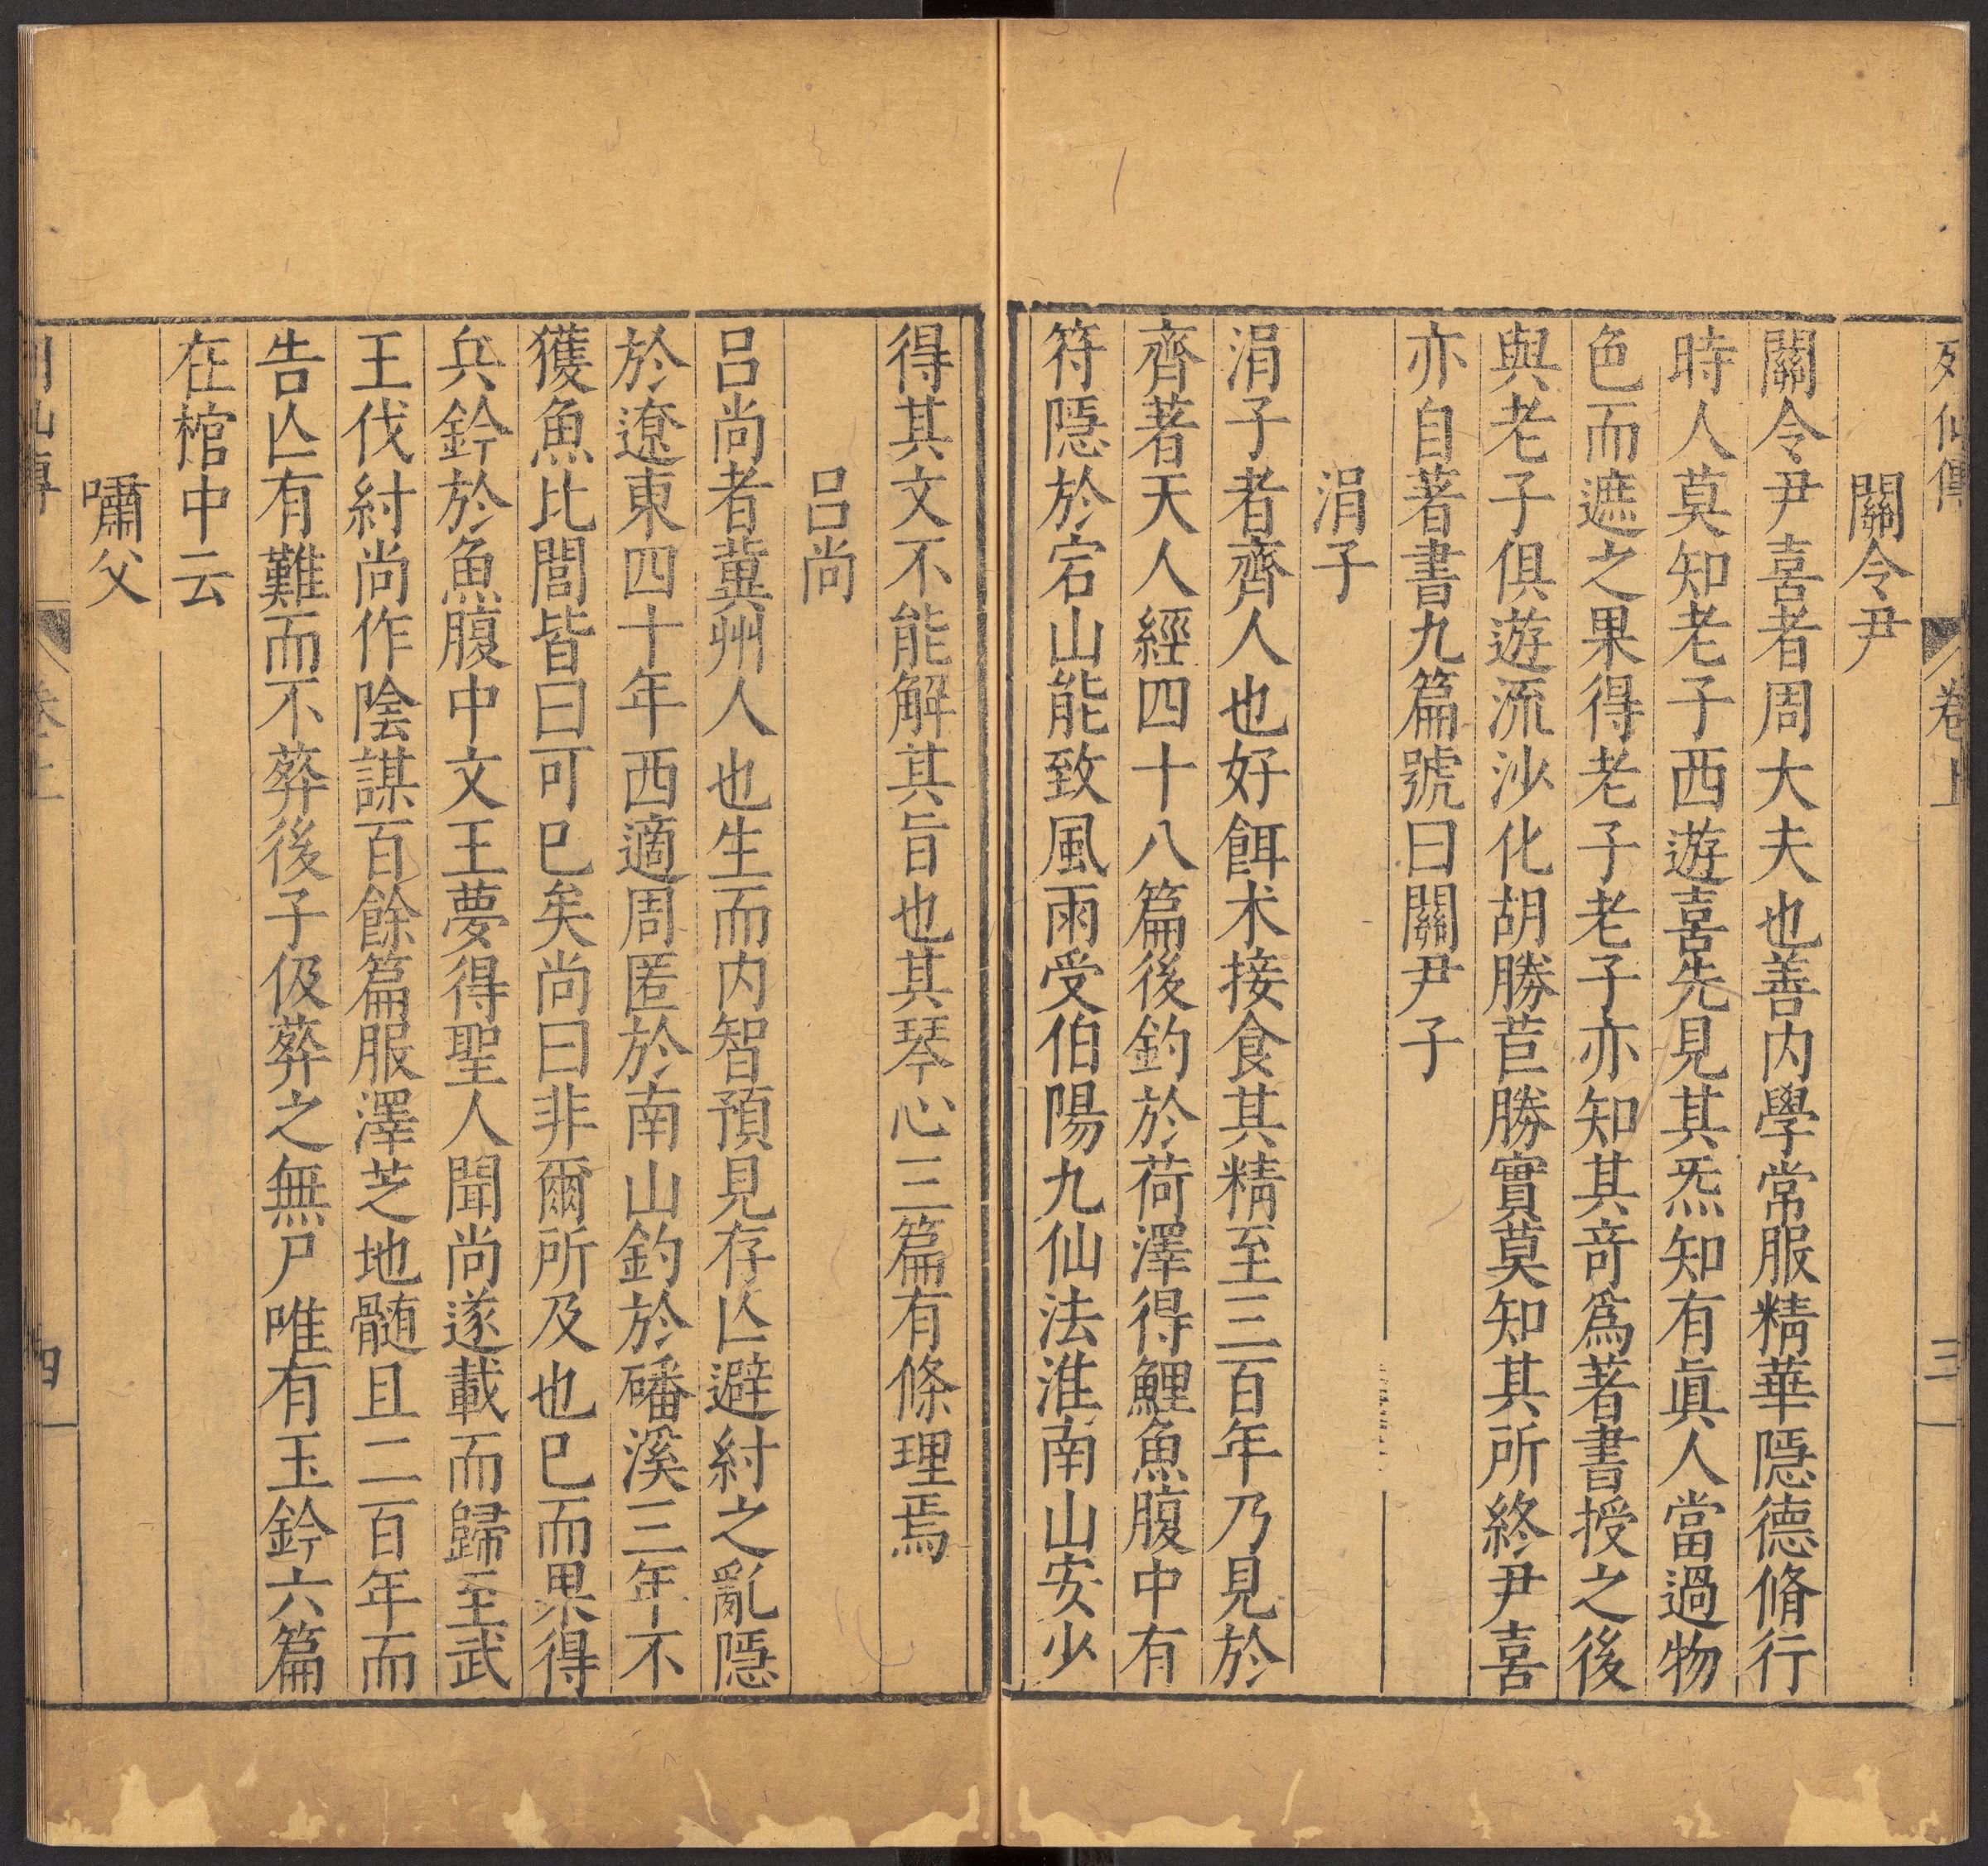 列仙傳 卷上 三
關令尹
關令尹喜者周大夫也善内學常服精華隱德脩行
時人莫知老子西遊喜先見其炁知有眞人當過物
色而遮之果得老子老子亦知其奇爲著書授之後
與老子俱遊流沙化胡勝苣勝實莫知其所終尹喜
亦自著書九篇號曰關尹子
涓子
涓子者齊人也好餌朮接食其精至三百年乃見於
齊著天人經四十八篇後釣於荷澤得鯉魚腹中有
符隱於宕山能致風雨受伯陽九仙法淮南山安少
得其文不能解其旨也其琴心三篇有條理焉
吕尚
吕尚者冀州人也生而内智預見存亾避紂之亂隱
於遼東四十年西適周匿於南山釣於磻溪三年不
獲魚比閭皆曰可巳矣尚曰非爾所及也巳而果得
兵鈐於魚腹中文王夢得聖人聞尚遂載而歸至武
王伐紂尚作陰謀百餘篇服澤芝地髄且二百年而
告亾有難而不葬後子伋葬之無尸唯有玉鈐六篇
在棺中云
嘯父
列仙傳 卷上 四